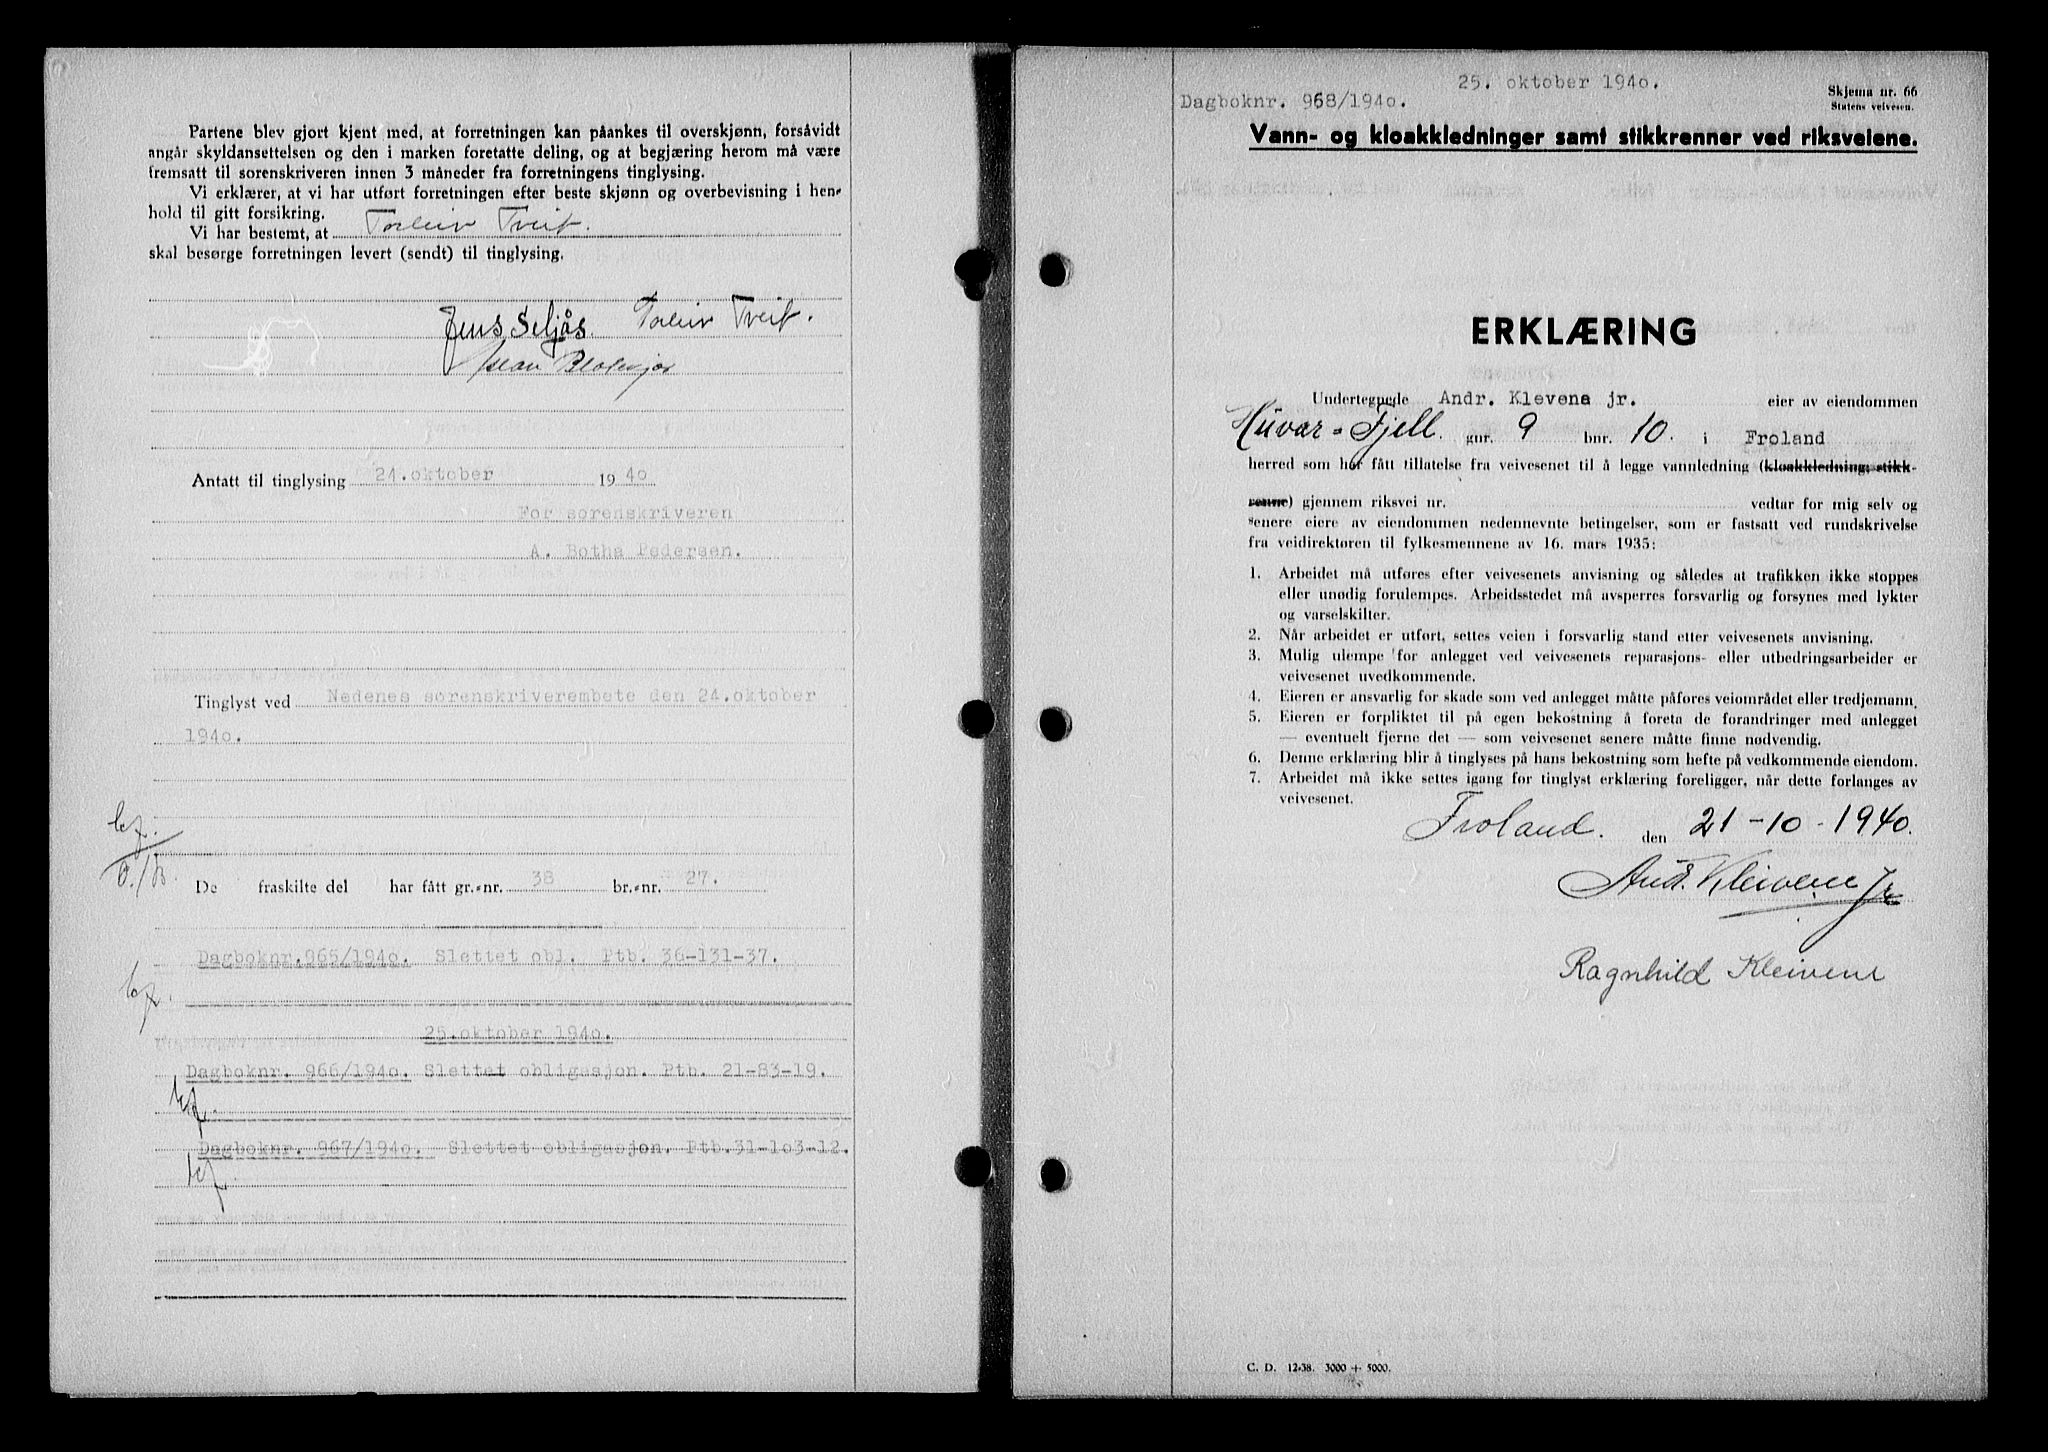 Partene blev gjort kjent med, at forretningen kan påankes til overskjønn, forsåvidt
angår skyldansettelsen og den i marken foretatte deling, og at begjæring herom må være
fremsatt til sorenskriveren innen 3 måneder fra forretningens tinglysing.
Vi erklærer, at vi har utført forretningen efter beste skjønn og overbevisning i hen-
hold til gitt forsikring.
Vi har bestemt, at Torleiv Tveit.
skal besørge forretningen levert (sendt) til tinglysing.
Jens Seljås. Torleiv Tveit.
Antatt til tinglysing 24.oktober 1940
For sorenskriveren
A. Botha Pedersen.
Tinglyst ved Nedenes sorenskriverembete den 24.oktober
1940.
De fraskilte del har fått gr.-nr. 38 br.-nr. 27.
Dagboknr.965/1940. Slettet obl. Ptb. 36-131-37.
25.oktober 1940.
Dagboknr. 966/1940. Slettet obligasjon. Ptb. 21-83-19.
Dagboknr. 967/1940. Slettet obligasjon. Ptb.31-103-12.
25. oktober 1940.
Dagboknr. 968/1940.
Skjema nr. 66
Statens veivesen.
Vann- og kloakkledninger samt stikkrenner ved riksveiene.
ERKLÆRING
Undertegnede Andr. Klevene jr. eier av eiendommen
Huvar-Fjell. gnr. 9 bnr. 10. i Froland
herred som har fått tillatelse fra veivesenet til å legge vannledning (kloakkledning; stikk-
renne) gjennem riksvei nr. vedtar for mig selv og
senere eiere av eiendommen nedennevnte betingelser, som er fastsatt ved rundskrivelse
fra veidirektøren til fylkesmennene av 16. mars 1935:
1. Arbeidet må utføres efter veivesenets anvisning og således at trafikken ikke stoppes
eller unødig forulempes. Arbeidsstedet må avsperres forsvarlig og forsynes med lykter
og varselskilter.
2. Når arbeidet er utført, settes veien i forsvarlig stand etter veivesenets anvisning.
3. Mulig ulempe for anlegget ved veivesenets reparasjons- eller utbedringsarbeider er
veivesenet uvedkommende.
4. Eieren er ansvarlig for skade som ved anlegget måtte påføres veiområdet eller tredjemann.
5. Eieren er forpliktet til på egen bekostning å foreta de forandringer med anlegget
— eventuelt fjerne det — som veivesenet senere måtte finne nødvendig.
6. Denne erklæring blir å tinglyses på hans bekostning som hefte på vedkommende eiendom.
7. Arbeidet må ikke settes igang før tinglyst erklæring foreligger, når dette forlanges av
veivesenet.
Froland. den 21-10-1940.
And. Kleivene Jr
Ragnhild Kleivene
C. D. 12-38. 3000 + 5000.